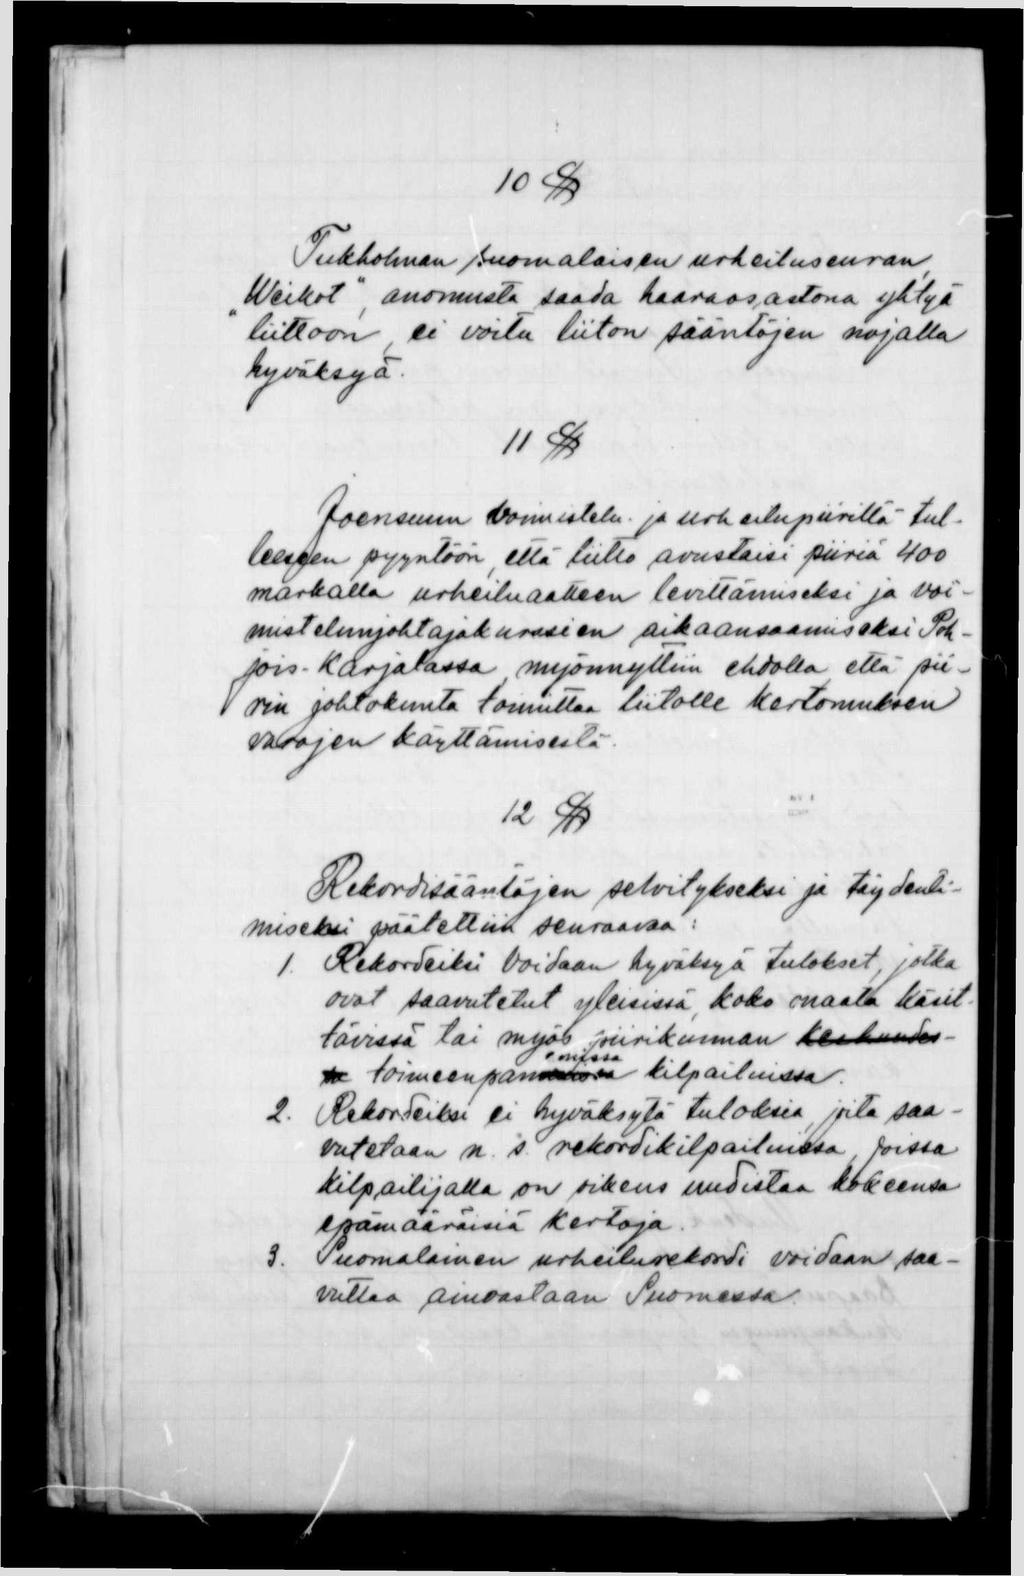 10 §
Tukholman suomalaisen urheiluseuran
„Weikot", anomusta saada haaraosastona yhtyä
liittoon, ei voitu liiton sääntöjen nojalla
hyväksyä.
11 §
Joensuun voimistelu- ja urheilupiiriltä tul-
leeseen pyyntöön, että liitto avustaisi piiriä 400
markalla urheiluaatteen levittämiseksi ja voi-
mistelunjohtajakurssien aikaansaamiseksi Poh-
jois-Karjalassa, myönnyttiin ehdolla että pii-
rin johtokunta toimittaa liitolle kertomuksen
varojen käyttämisestä.
12 §
Rekordisääntöjen selvitykseksi ja täydentä-
miseksi päätettiin seuraavaa:
1. Rekordeiksi voidaan hyväksyä tulokset, jotka
ovat saavutetut yleisissä, koko maata käsit-
tävissä tai myös piirikunnan
toimeenpanemissa kilpailuissa.
2. Rekordeiksi ei hyväksytä tuloksia, joita saa-
vutetaan n. s. rekordikilpailuissa, joissa
kilpailijalla on oikeus uudistaa kokeensa
epämääräisiä kertoja.
3. Suomalainen urheilurekordi voidaan saa-
vuttaa ainoastaan Suomessa.